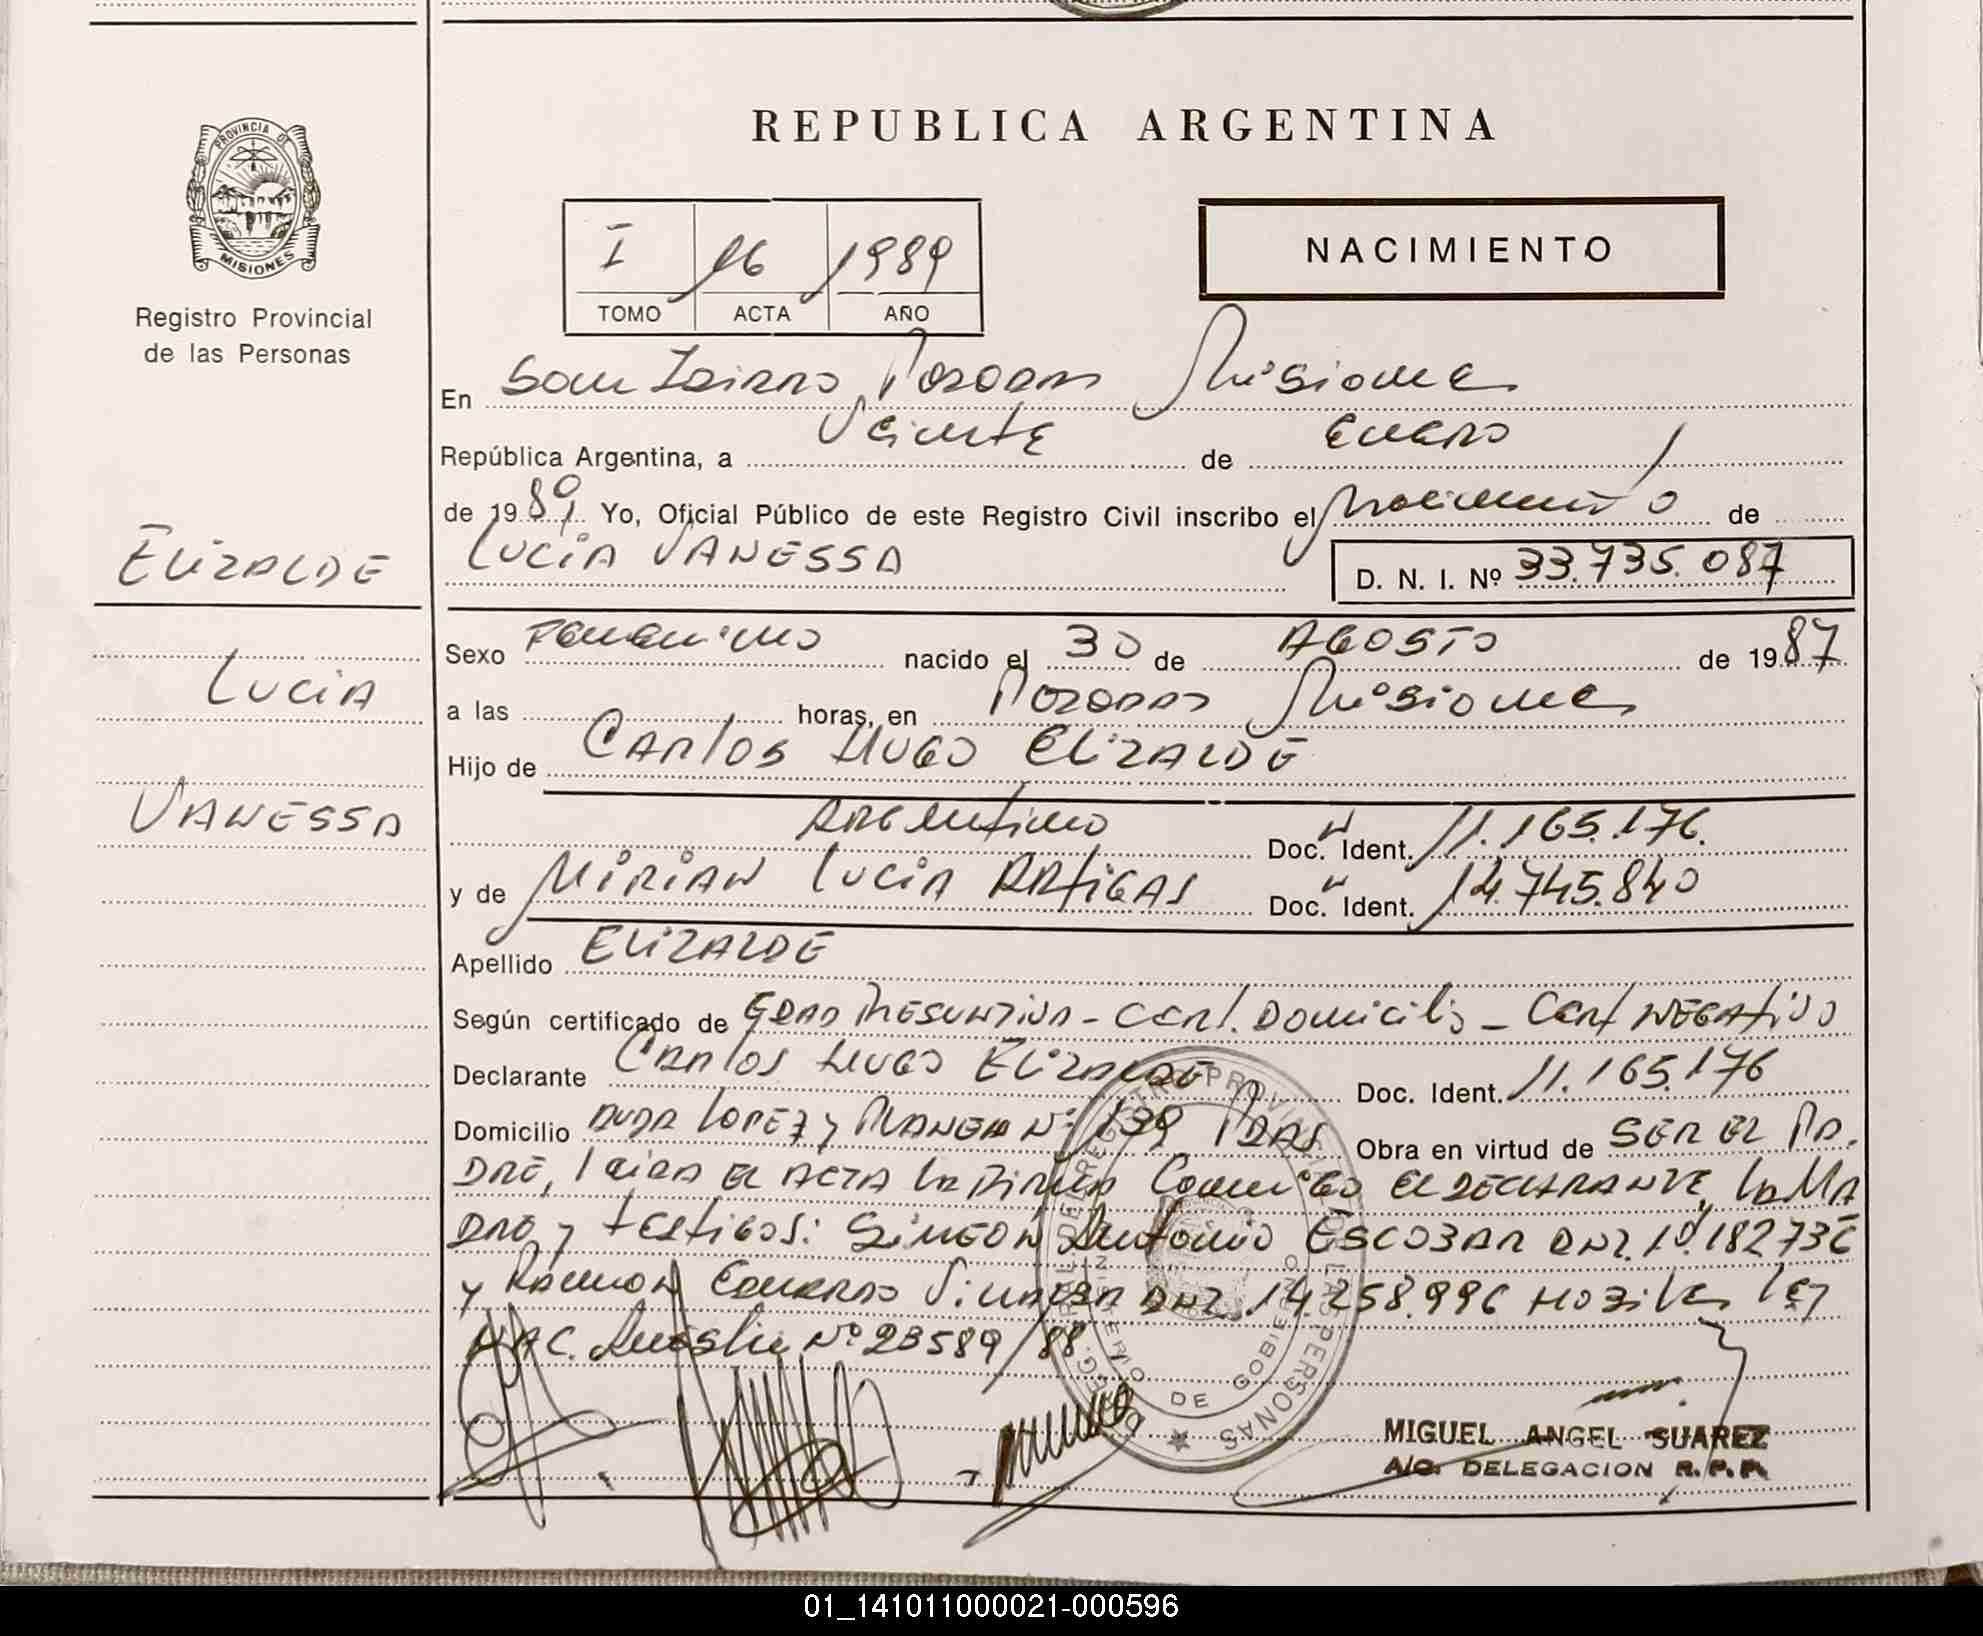 PROVINCIA DE
MISIONES
Registro Provincial
de las Personas
REPUBLICA ARGENTINA
I 16 1989
TOMO ACTA AÑO
NACIMIENTO
En San Isidro, Posadas Misiones
República Argentina, a Veinte de Enero
de 1989 Yo, Oficial Público de este Registro Civil inscribo el nacimiento de
ELIZALDE
LUCIA VANESSA
D. N. I. Nº 33.735.087
Sexo Femenino nacido el 30 de AGOSTO de 1987
LUCIA
a las horas, en Posadas Misiones
Hijo de CARLOS HUGO ELIZALDE
VANESSA
Argentino Doc. Ident. 11.165.176.
y de MIRIAN LUCIA ARTIGAS Doc. Ident. 14.745.840
Apellido ELIZALDE
Según certificado de EDAD PRESUNTIVA - Cert. Domicilio - Cert NEGATIVO
Declarante CARLOS HUGO ELIZALDE Doc. Ident. 11.165.176
Domicilio LOPEZ y PLANES Nº 139 PDAS Obra en virtud de SER EL PA.
DRE, leida EL ACTA la Firma Conmigo EL DECLARANTE, la MA
DRE y testigos: SIMEON Antonio ESCOBAR DNI.
y Ramon Eduardo DNI. 14.258.996 Ley
NAC. Nº 23589/88
MIGUEL ANGEL SUAREZ
A/C. DELEGACION R.P.P.
01_141011000021-000596